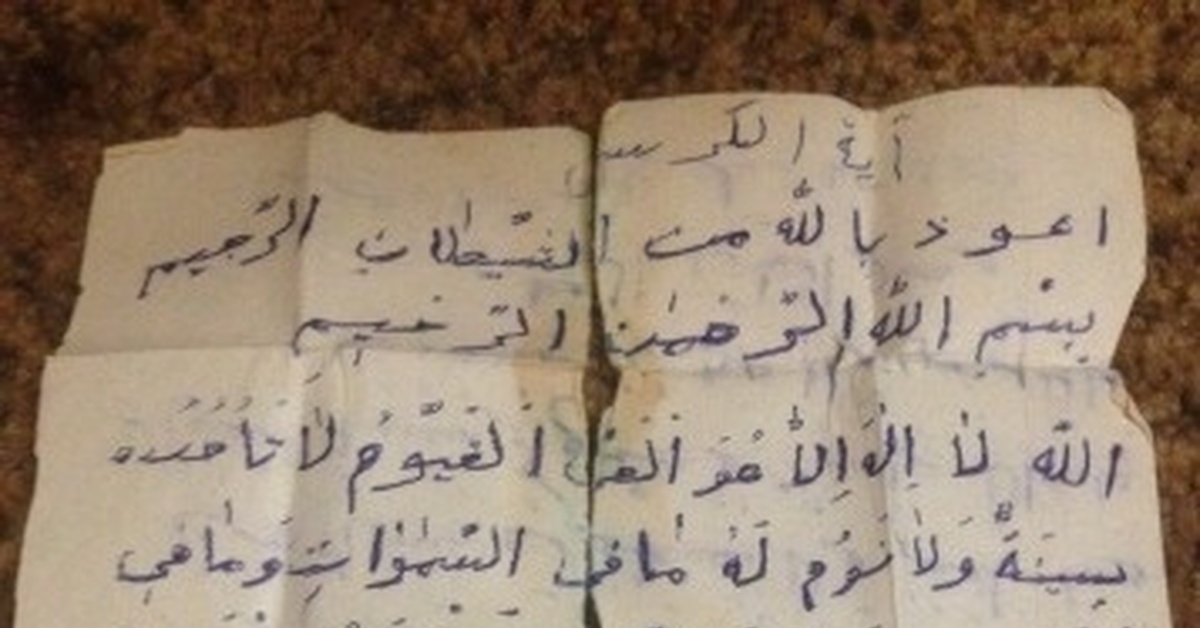 آية الكرسي
اعوذ بالله من الشيطان الرّجيم
بِسْمِ اللهِ الرَّحْمٰنِ الرّحيمِ
اللّٰه لاٰ اِلٰهَ اِلاّٰ هُوَ اَلْحَىُّ اَلْقَيّوُمُ لاٰ تَأخُذُه
سِنَةٌ وَلاٰ نَوُم لَهُ مٰا في السَّمٰوٰاتِ وَمٰا في